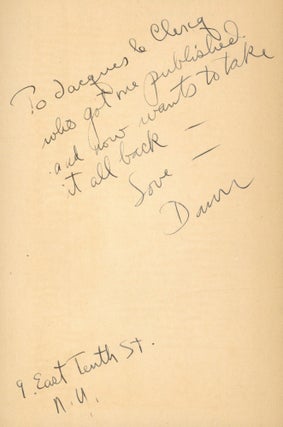 To Jacques le Clercq
who got me published
and now wants to take
it all back —
Love —
Dawn
9. East Tenth St.
N.Y.